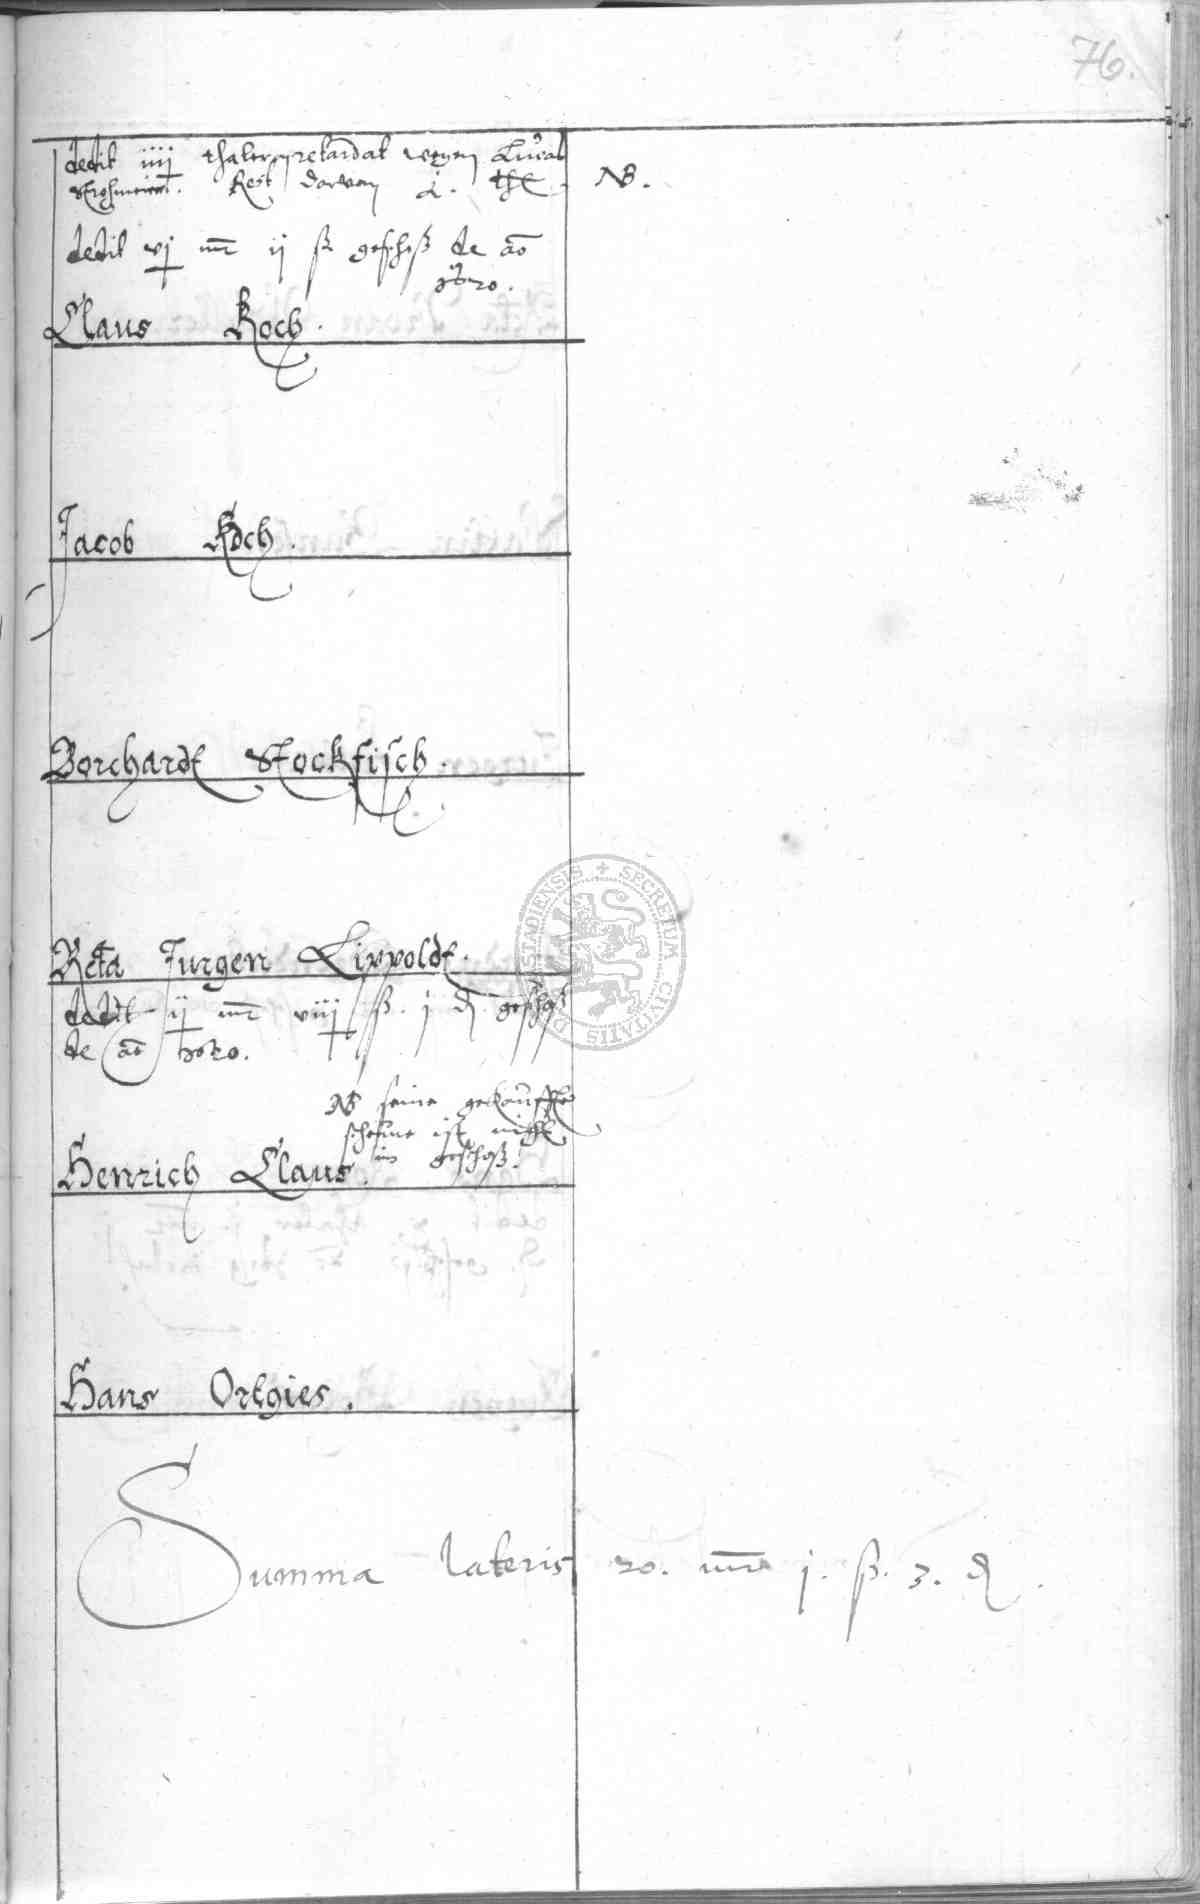 76.
dedit iiij thaler retardat wegen
Rest 2. thl NB.
dedit vj mr ij ß geschoß de ao
1620.
Claus Koch.
Jacob Koch.
Borchardt Stockfisch.
Rcta Jurgen Lippoldt.
dedit ij mr viij ß. j d. geschoß
de ao 1620.
NB seine gekauffte
scheune ist nicht
im geschoß.
Henrich Claus.
Hans Ortgies.
Summa lateris 20. mr j. ß. 3. d.
SECRETUM CIVITATIS STADIENSIS